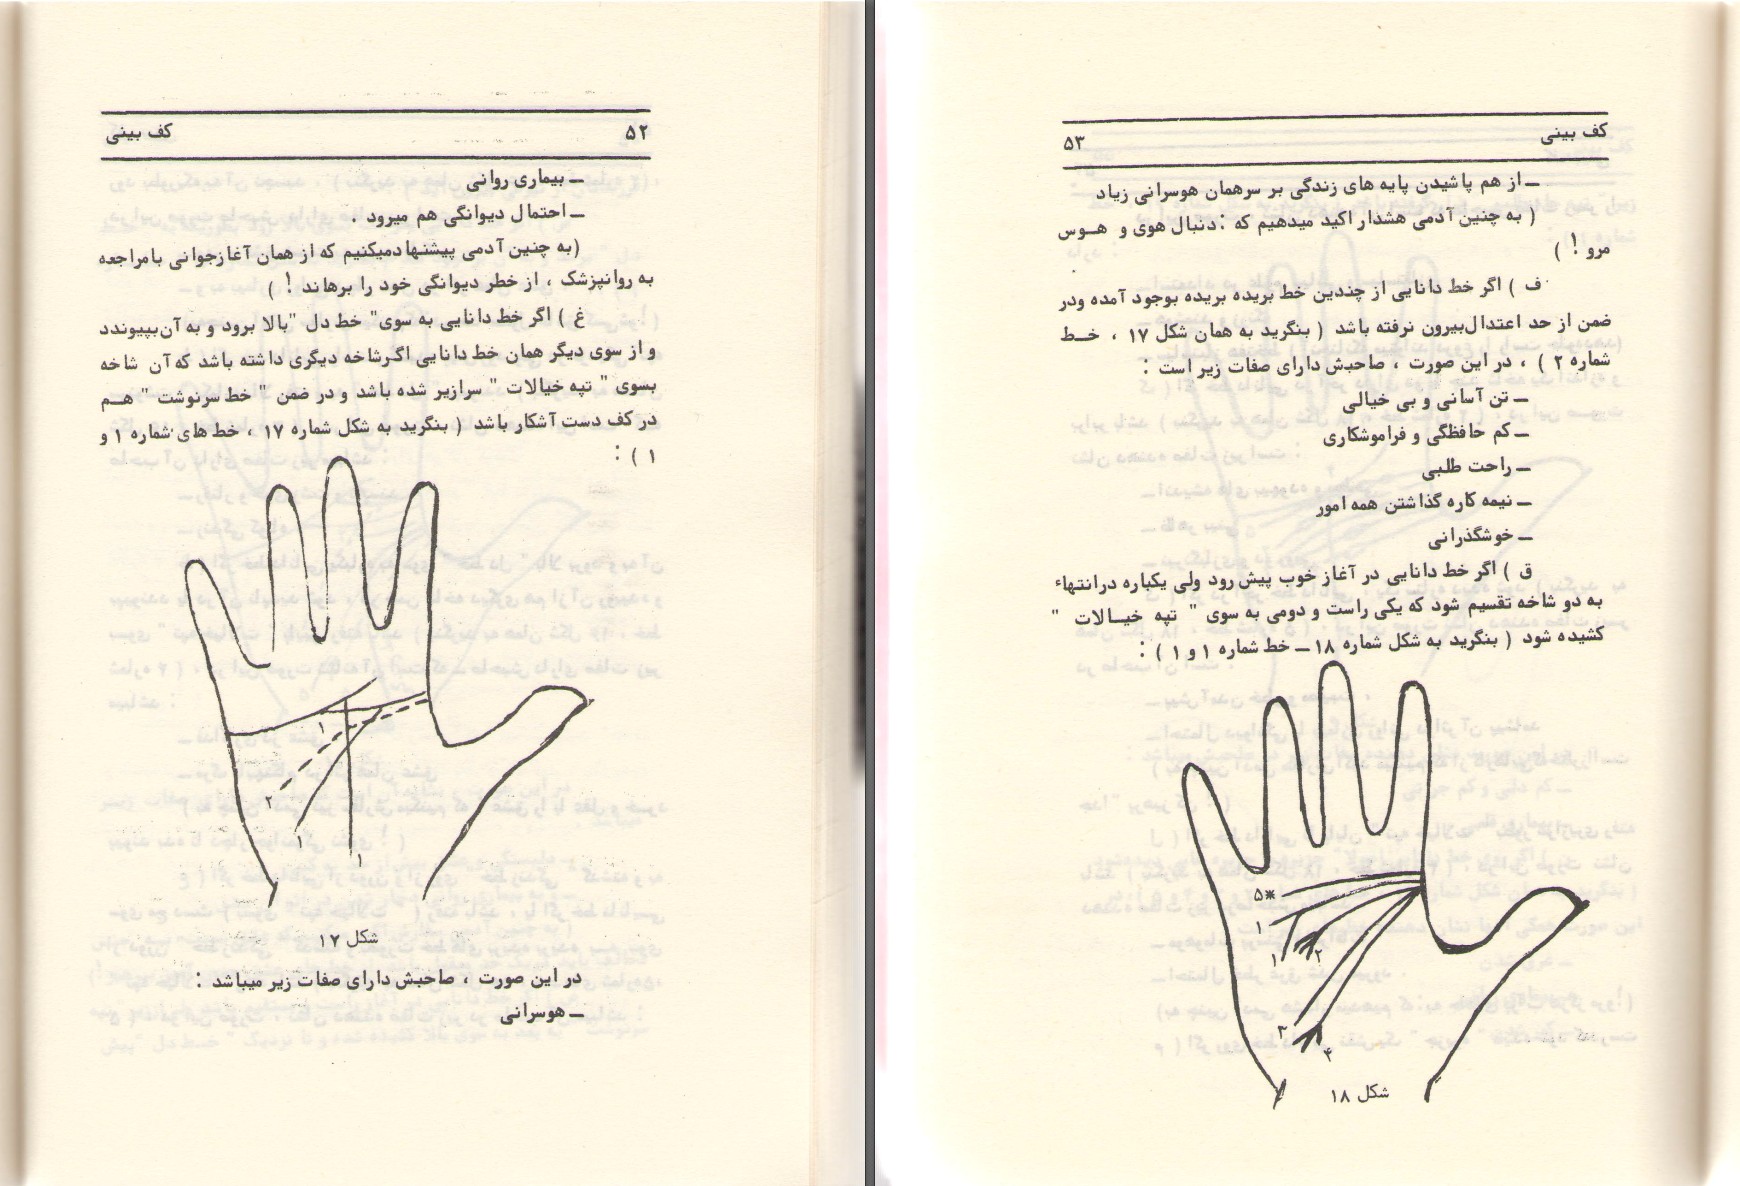 ۵۲ کف بینی
ــ بیماری روانی
ــ احتمال دیوانگی هم میرود .
(به چنین آدمی پیشنهادمیکنیم که از همان آغازجوانی بامراجعه
به روانپزشک ، از خطر دیوانگی خود را برهاند ! )
غ ) اگر خط دانایی به سوی" خط دل "بالا برود و به آن‌بپیوندد
و از سوی دیگر همان خط دانایی اگرشاخه دیگری داشته باشد که آن شاخه
بسوی " تپه خیالات " سرازیر شده باشد و در ضمن " خط سرنوشت " هــم
در کف دست آشکار باشد ( بنگرید به شکل شماره ۱۷ ، خط های شماره ۱ و
۱ ) :
۱
۲
۱
۱
شکل ۱۷
در این صورت ، صاحبش دارای صفات زیر میباشد :
ــ هوسرانی
کف بینی ۵۳
ــ از هم پاشیدن پایه های زندگی بر سرهمان هوسرانی زیاد
( به چنین آدمی هشدار اکید میدهیم که : دنبال هوی و هــوس
مرو ! )
ف ) اگر خط دانایی از چندین خط بریده بریده بوجود آمده ودر
ضمن از حد اعتدال‌بیرون نرفته باشد ( بنگرید به همان شکل ۱۷ ، خــط
شماره ۲ ) ، در این صورت ، صاحبش دارای صفات زیر است :
ــ تن آسانی و بی خیالی
ــ کم حافظگی و فراموشکاری
ــ راحت طلبی
ــ نیمه کاره گذاشتن همه امور
ــ خوشگذرانی
ق ) اگر خط دانایی در آغاز خوب پیش رود ولی یکباره درانتهاء
به دو شاخه تقسیم شود که یکی راست و دومی به سوی " تپه خیــالات "
کشیده شود ( بنگرید به شکل شماره ۱۸ ــ خط شماره ۱ و ۱ ) :
۵*
۱
۱
۲
۳
۴
شکل ۱۸